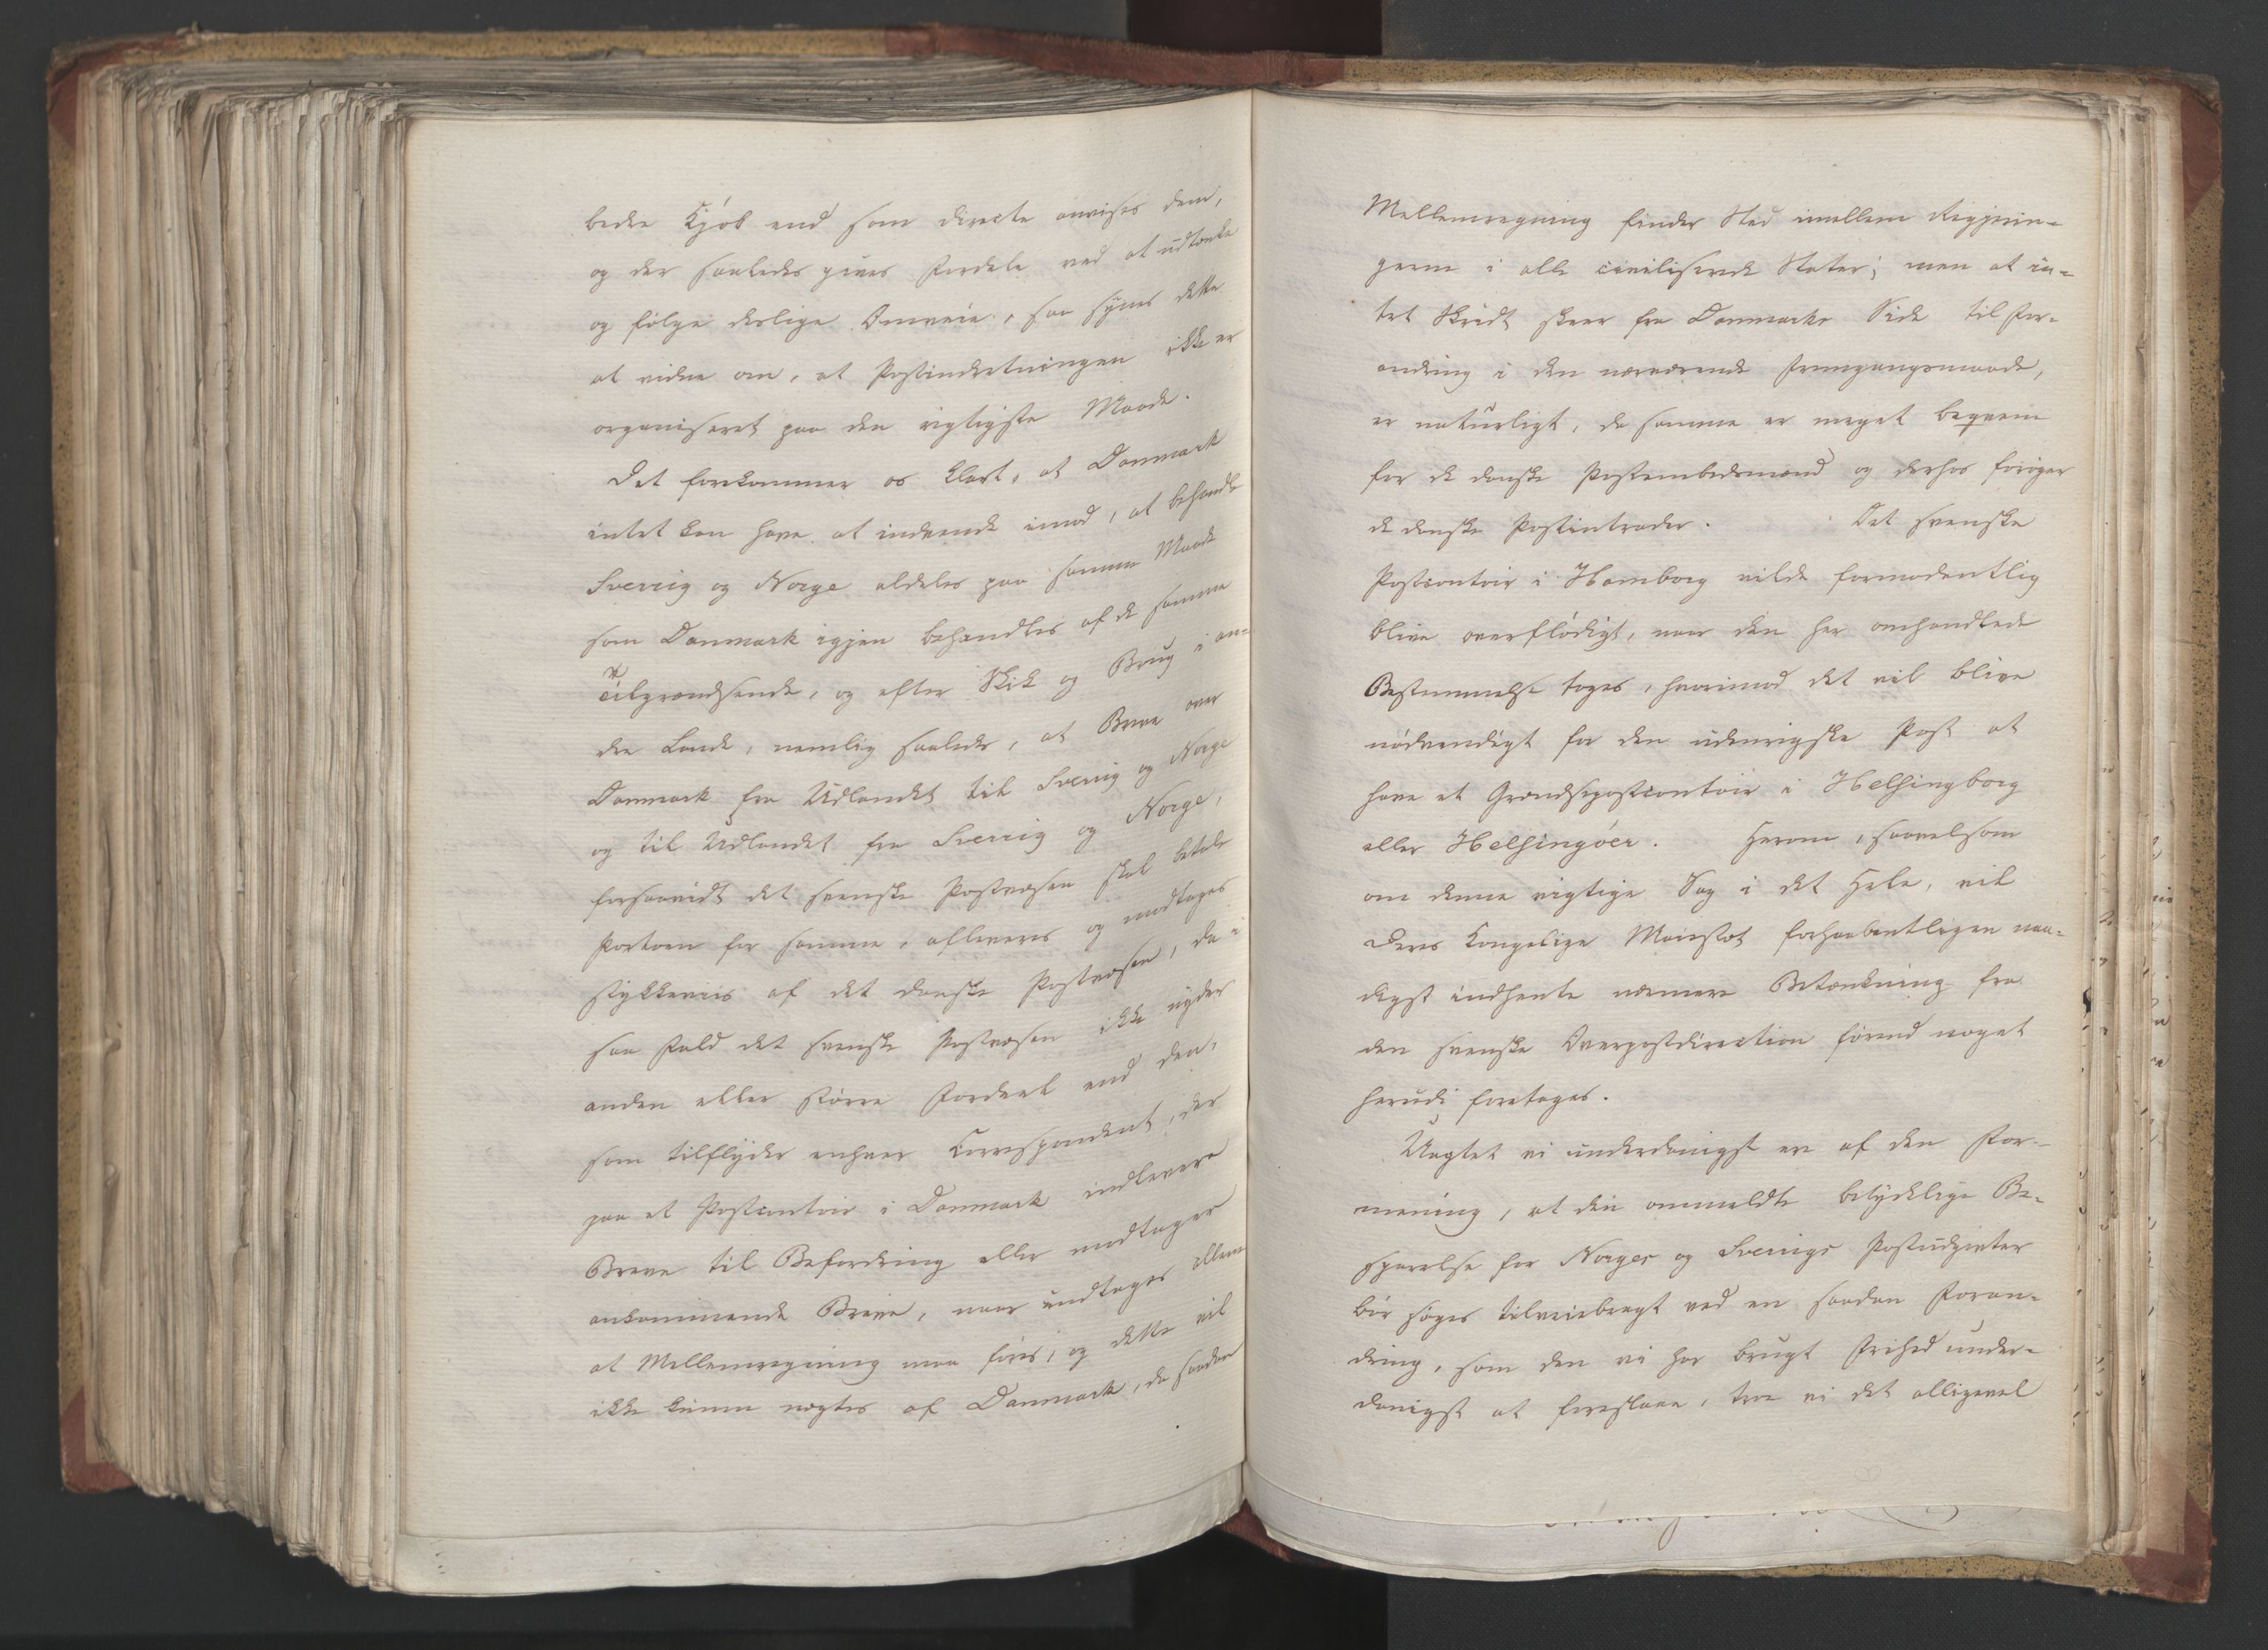 bedre Kjøb end som directe anvises dem,
og der saaledes gives Fordele ved at udtænke
og følge deslige Omveie, saa synes dette
at vidne om, at Postindretningen ikke er
organiseret paa den rigtigste Maade.
Det forekommer os klart, at Danmark
intet kan have at indvende imod, at behandle
Sverrig og Norge aldeles paa samme Maade
som Danmark igjen behandles af de samme
Tilgrændsende, og efter Skik og Brug i an-
dre Lande, nemlig saaledes, at Breve over
Danmark fra Udlandet til Sverrig og Norge
og til Udlandet fra Sverrig og Norge,
forsaavidt det svenske Postvæsen skal betale
Portoen for samme, afleveres og modtages
stykkeviis af det danske Postvæsen, da i
saa Fald det svenske Postvæsen ikke nyder
anden eller større Fordeel end den,
som tilflyder enhver Correspondent, der
paa et Postcontoir i Danmark indlevere
Breve til Befordring eller modtager
ankommende Breve, naar undtages allene
at Mellemregning maa føres, og dette vil
ikke kunne nægtes af Danmark, da saadan
Mellemregning finder Sted imellem Regjerin-
gerne i alle civiliserede Stater; men at in-
tet Skridt skeer fra Danmarks Side til For-
andring i den nærværende Fremgangsmaade,
er naturligt, da samme er meget beqvem
for de danske Postembedsmænd og derhos forøger
de danske Postintrader. Det svenske
Postcontoir i Hamborg vilde formodentlig
blive overflødigt, naar den her omhandlede
Bestemmelse toges, hvorimod det vil blive
nødvendigt for den udenrigske Post at
have et Grændsepostcontoir i Helsingborg
eller Helsingøer. Herom, saavelsom
om denne vigtige Sag i det Hele, vil
Deres Kongelige Maiestæt forhaabentligen naa-
digst indhente nærmere Betænkning fra
den svenske Overpostdirection førend noget
herudi foretages.
Uagtet vi underdanigst ere af den For-
mening, at den ommeldte betydelige Be-
sparelse for Norges og Sverrigs Postudgivter
bør søges tilveiebragt ved en saadan Foran-
dring, som den vi har brugt Frihed under-
danigst at foreslaae, troe vi det alligevel